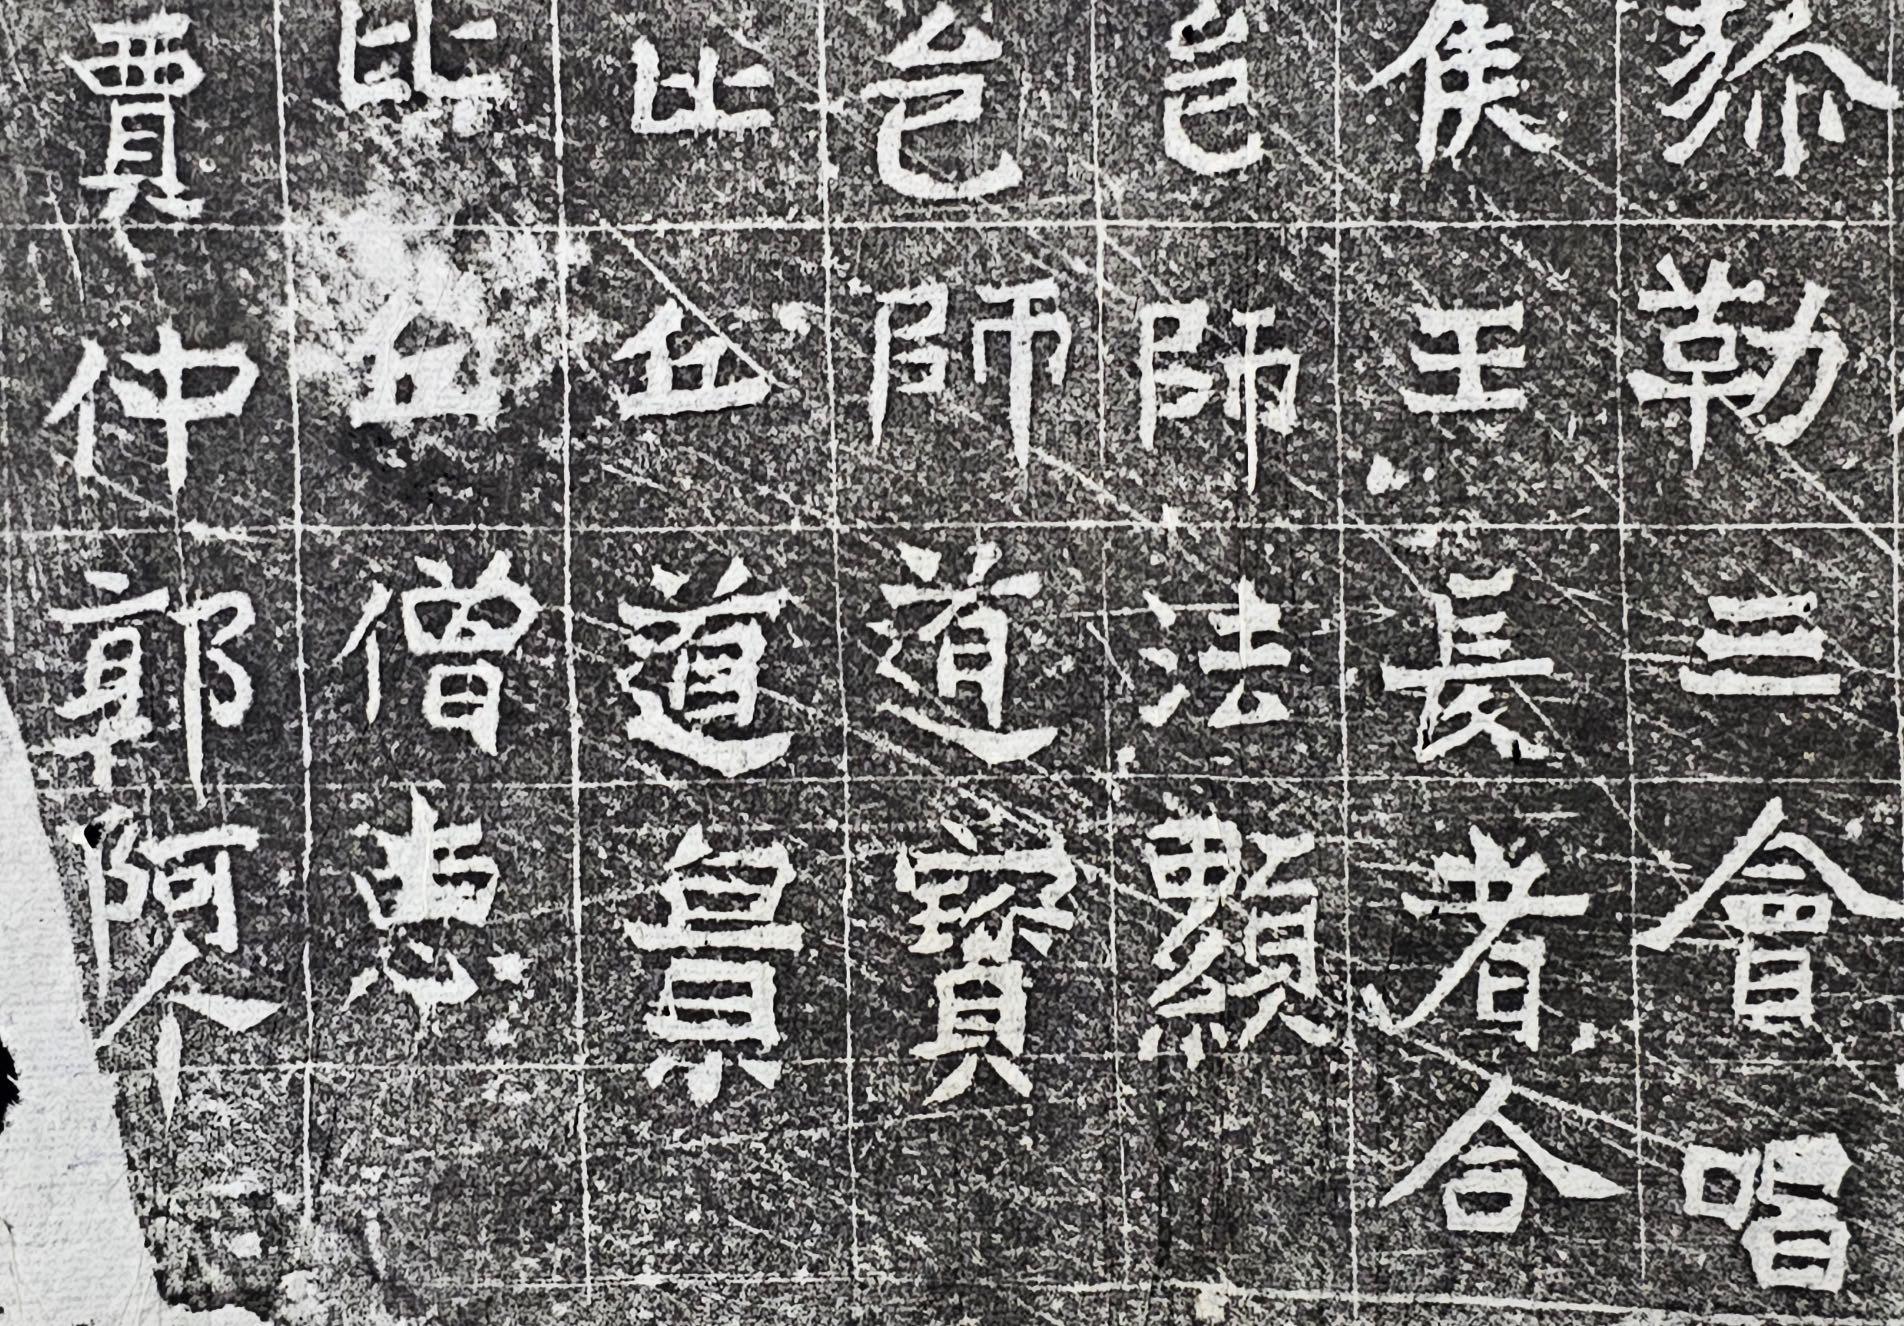 弥勒三會唱
侯王長者合
邑師法顯
邑師道寶
比丘道
比丘僧惠
賈仲郭阿